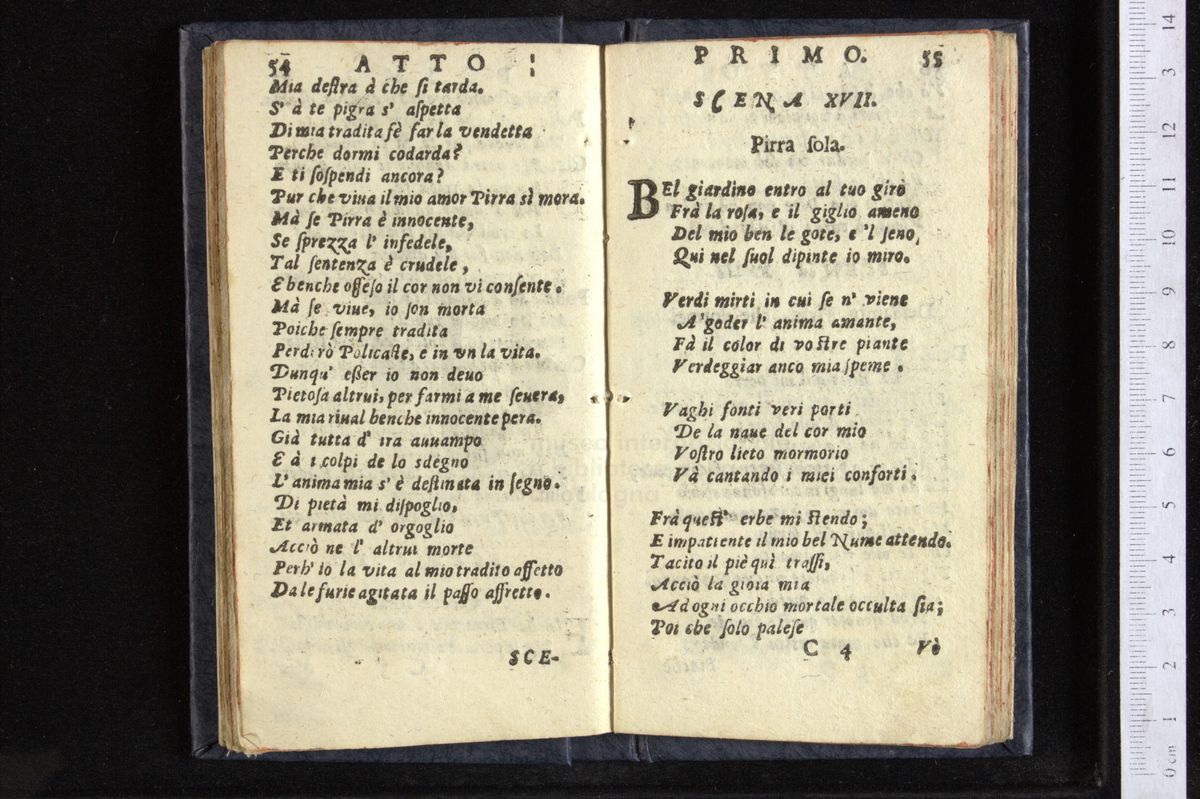 54 ATTO
Mia destra à che si tarda.
S' à te pigra s' aspetta
Di mia tradita fè far la vendetta
Perche dormi codarda?
E ti sospendi ancora?
Pur che viua il mio amor Pirra sì mora.
Mà se Pirra è innocente,
Se sprezza l' infedele,
Tal sentenza è crudele,
E benche offeso il cor non vi consente.
Mà se viue, io son morta
Poiche sempre tradita
Perdirò Policaste, e in vn la vita.
Dunqu' esser io non deuo
Pietosa altrui, per farmi a me seuera,
La mia riual benche innocente pera.
Già tutta d' ira auuampo
E à i colpi de lo sdegno
L'anima mia s' è destinata in segno.
Di pietà mi dispoglio,
Et armata d' orgoglio
Acciò ne l' altrui morte
Perh' io la vita al mio tradito affetto
Da le furie agitata il passo affretto.
SCE-
PRIMO. 55
SCENA XVII.
Pirra sola.
BEl giardino entro al tuo giro
Frà la rosa, e il giglio ameno
Del mio ben le gote, e 'l seno,
Qui nel suol dipinte io miro.
Verdi mirti in cui se n' viene
A' goder l' anima amante,
Fà il color di vostre piante
Verdeggiar anco mia speme.
Vaghi fonti veri porti
De la naue del cor mio
Vostro lieto mormorio
Và cantando i miei conforti.
Frà quest' erbe mi stendo;
E impatiente il mio bel Nume attendo.
Tacito il piè quì trassi,
Acciò la gioia mia
Ad ogni occhio mortale occulta sia;
Poi che solo palese
C 4 Vò
museo inter
bibliot
bologna
0 cm 1 2 3 4 5 6 7 8 9 10 11 12 13 14